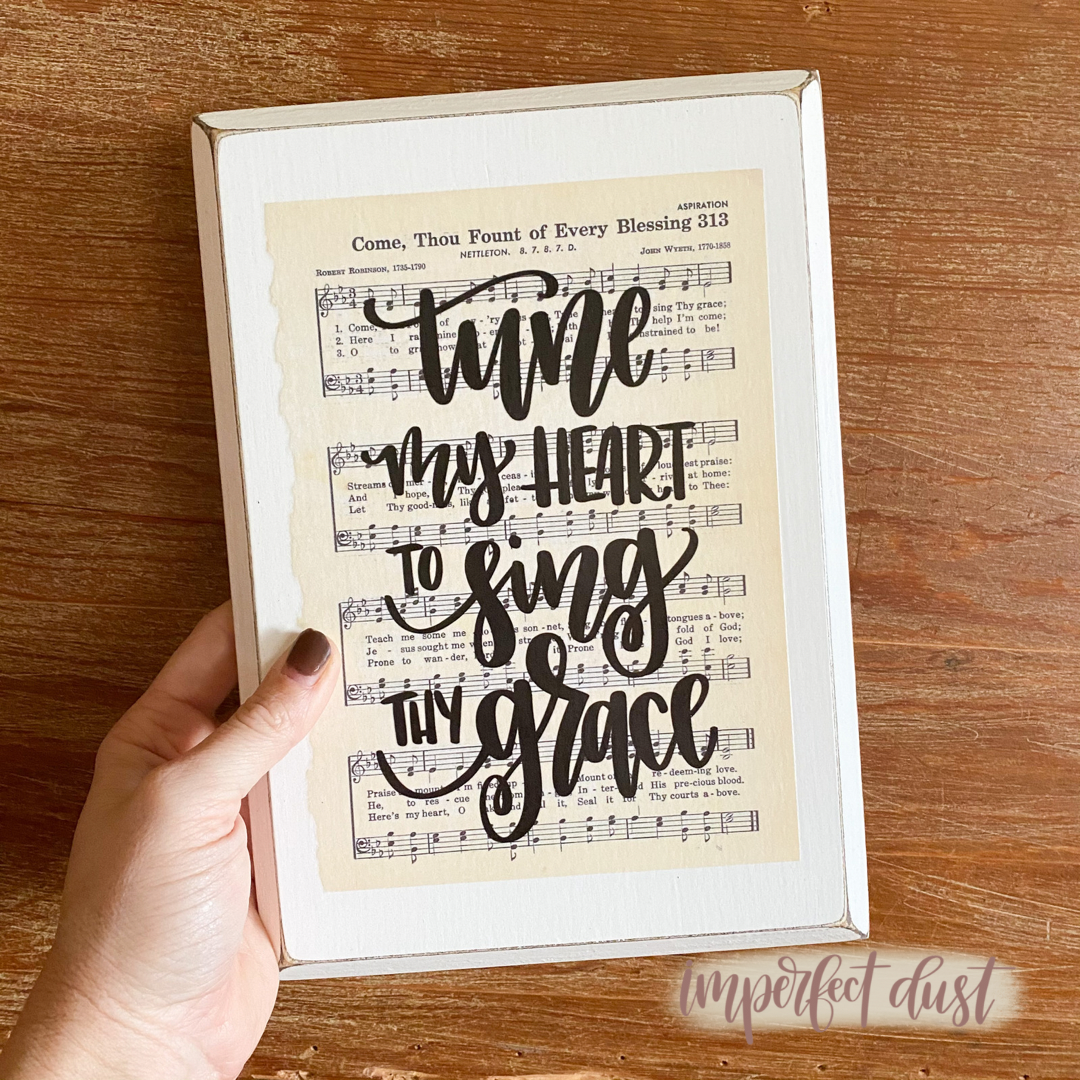 ASPIRATION
Come, Thou Fount of Every Blessing 313
NETTLETON. 8. 7. 8. 7. D.
ROBERT ROBINSON, 1735-1790
JOHN WYETH, 1770-1858
tune
1. Come, of 'ry sing Thy grace;
2. Here I help I'm come;
3. O to strained to be!
my HEART
Streams ceas est praise:
And hope, Thy at home:
Let Thy good to Thee:
TO sing
Teach me some me son-net, tongues a-bove;
Je-sus sought me when fold of God;
Prone to wan-der, Prone God I love;
THY grace
Praise mount Mount of re-deem-ing love.
He, to res-cue In-ter His pre-cious blood.
Here's my heart, O it, Seal it for Thy courts a-bove.
imperfect dust